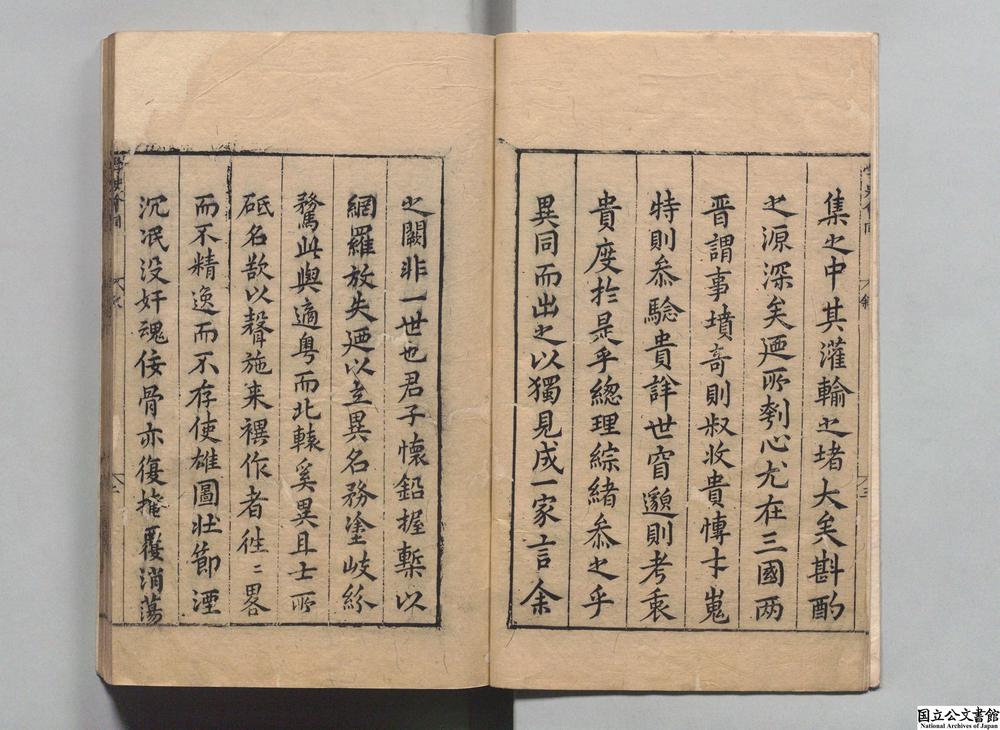 集之中其灌輸之堵大矣斟酌
之源深矣迺所刳心尤在三國兩
晉謂事墳奇則叔收貴博才嵬
特則叅驗貴詳世窅邈則考衷
貴度於是乎總理綜緒叅之乎
異同而出之以獨見成一家言余
之闕非一世也君子懷鉛握槧以
網羅放失迺以立異名務塗岐紛
騖此與適粤而北轅奚異且士所
砥名欲以聲施来禩作者徃〻畧
而不精逸而不存使雄圖壯節湮
沉冺没奸魂佞骨亦復掩覆消蕩
国立公文書館
National Archives of Japan